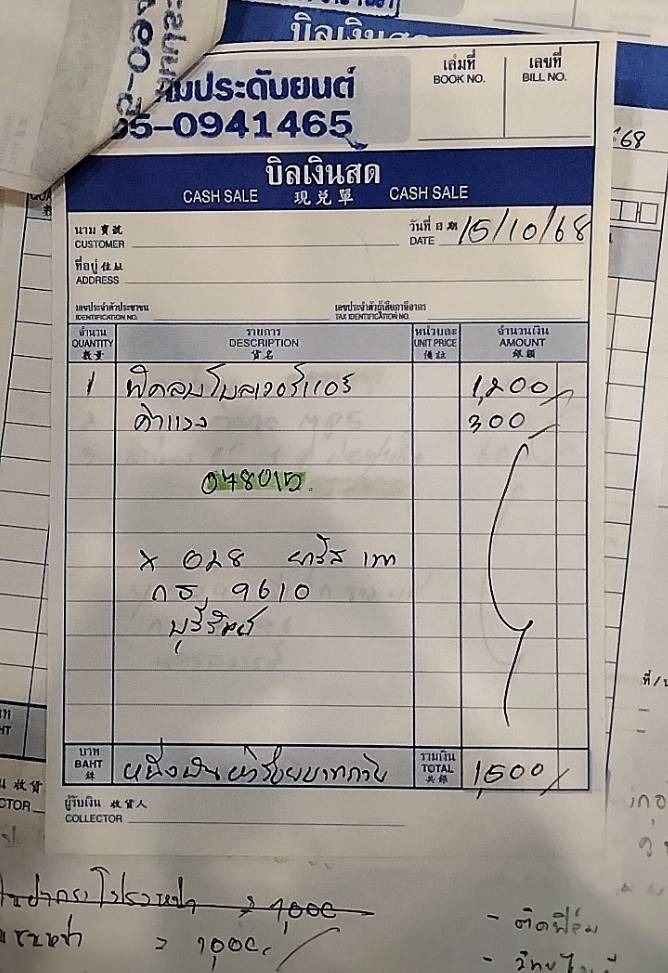 บิลเงินสด
ประดับยนต์
5-0941465
เล่มที่ เลขที่
BOOK NO. BILL NO.
บิลเงินสด
CASH SALE 現兌單 CASH SALE
นาม 寶號
CUSTOMER
วันที่ 日期
DATE 15/10/68
ที่อยู่ 住址
ADDRESS
เลขประจำตัวประชาชน เลขประจำตัวผู้เสียภาษีอากร
IDENTIFICATION NO. TAX IDENTIFICATION NO.
จำนวน รายการ หน่วยละ จำนวนเงิน
QUANTITY DESCRIPTION UNIT PRICE AMOUNT
數量 貨名 備註 銀額
1 พัดลมโบลเวอร์แอร์ 1,200
ค่าแรง 300
048015
X 028 ยาริส เทา
กธ 9610
บุรีรัมย์
บาท รวมเงิน
BAHT หนึ่งพันห้าร้อยบาทถ้วน TOTAL 1,500
銖 共銀
ผู้รับเงิน 收貨人
COLLECTOR
1,000
= 1,000
- ติดฟิล์ม